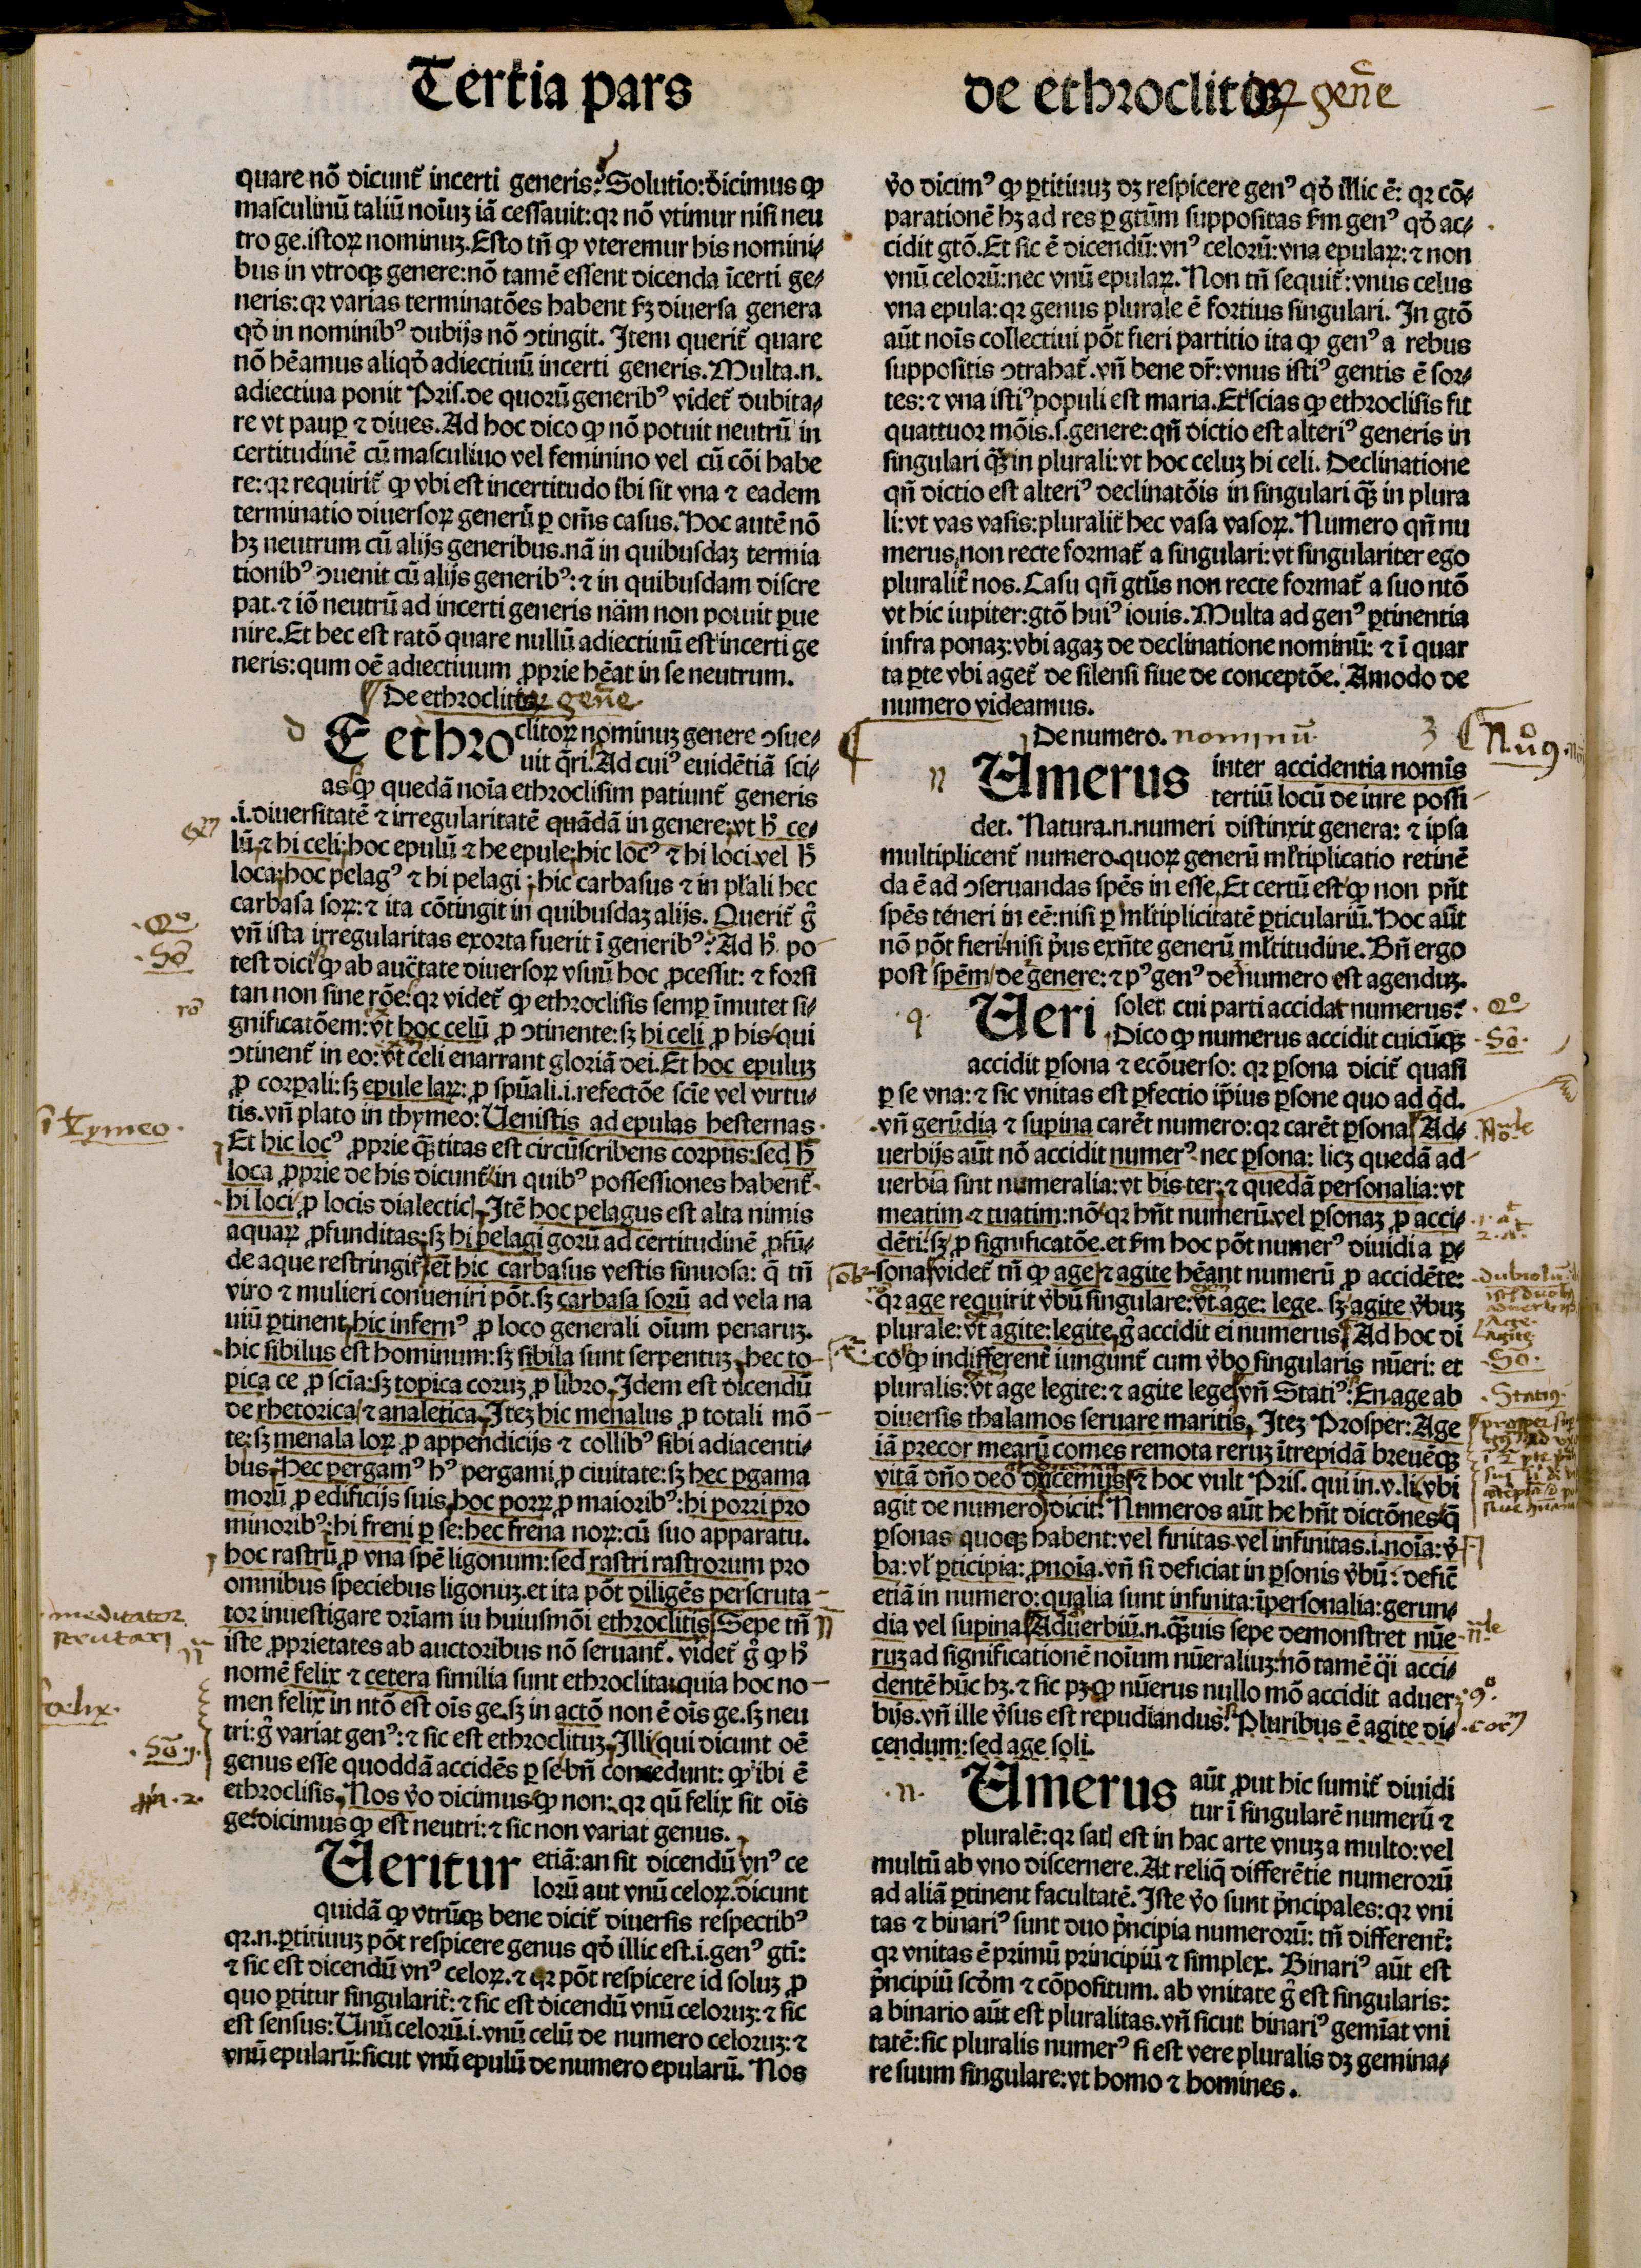 Tertia pars
de ethroclitoꝝ gen̄e
quare nō dicunt̃ incerti generis? Solutio: dicimus ꝙ
masculinū taliū noīuꝫ iā cessauit: qꝛ nō vtimur nisi neu
tro ge. istoꝝ nominuꝫ. Esto tn̄ ꝙ vteremur his nomini⸗
bus in vtroqꝫ genere: nō tamē essent dicenda īcerti ge⸗
neris: qꝛ varias terminatōes habent ẜꝫ diuersa genera
qḋ in nominibꝰ dubijs nō ↄtingit. Item querit̃ quare
nō hēamus aliqḋ adiectiuū incerti generis. Multa.n.
adiectiua ponit Pris. de quorū generibꝰ videt̃ dubita⸗
re vt pauꝑ ⁊ diues. Ad hoc dico ꝙ nō potuit neutrū in
certitudinē cū masculiuo vel feminino vel cū cōi habe
re: qꝛ requirit̃ ꝙ vbi est incertitudo ibi sit vna ⁊ eadem
terminatio diuersoꝝ generū ꝑ om̄s casus. Hoc autē nō
hꝫ neutrum cū alijs generibus. nā in quibusdaꝫ termia
tionibꝰ ↄuenit cū alijs generibꝰ: ⁊ in quibusdam discre
pat. ⁊ iō neutrū ad incerti generis nām non potuit ꝑue
nire. Et hec est ratō quare nullū adiectiuū est incerti ge
neris: qum oē adiectiuum ꝓprie hēat in se neutrum.
¶ De ethroclitoꝝ gen̄e
d
E ethro clitoꝝ nominuꝫ genere ↄsue⸗
uit q̄ri. Ad cuiꝰ euidētiā sci⸗
as ꝙ quedā noīa ethroclisim patiunt̃ generis
.i. diuersitatē ⁊ irregularitatē quādā in genere: vt hͦ ce⸗
lū ⁊ hi celi: hoc epulū ⁊ he epule: hic locꝰ ⁊ hi loci vel hͦ
loca: hoc pelagꝰ ⁊ hi pelagi: hic carbasus ⁊ in pl̃ali hec
carbasa soꝝ: ⁊ ita cōtingit in quibusdaꝫ alijs. Querit̃ g̊
vn̄ ista irregularitas exorta fuerit ī generibꝰ? Ad hͦ po
test dici ꝙ ab auc̄tate diuersoꝝ vsuū hoc ꝓcessit: ⁊ forsi
tan non sine rōe: qꝛ videt̃ ꝙ ethroclisis semꝑ īmutet si⸗
gnificatōem: vt hoc celū ꝓ ↄtinente: sꝫ hi celi ꝓ his qui
ↄtinent̃ in eo: vt celi enarrant gloriā dei. Et hoc epuluꝫ
ꝓ corꝑali: sꝫ epule laꝝ: ꝓ spūali .i. refectōe scīe vel virtu⸗
tis. vn̄ plato in thymeo: Uenistis ad epulas hesternas.
Et hic locꝰ ꝓprie q̄ꝫtitas est circūscribens corpus: sed hͦ
loca ꝓprie de his dicunt̃ in quibꝰ possessiones habent̃.
hi loci ꝓ locis dialecticꝭ. Itē hoc pelagus est alta nimis
aquaꝝ ꝓfunditas: sꝫ hi pelagi gorū ad certitudinē ꝓfū⸗
de aque restringit̃ et hic carbasus vestis sinuosa: q̄ tn̄
viro ⁊ mulieri conueniri pōt. sꝫ carbasa sorū ad vela na
uiū ꝑtinent hic infernꝰ ꝓ loco generali oīum penaruꝫ.
hic sibilus est hominum: sꝫ sibila sunt serpentuꝫ hec to
pica ce ꝓ scīa: sꝫ topica coruꝫ ꝓ libro. Idem est dicendū
de rhetorica ⁊ analetica. Iteꝫ hic menalus ꝓ totali mō
te: sꝫ menala loꝝ ꝓ appendicijs ⁊ collibꝰ sibi adiacenti⸗
bus. Hec pergamꝰ hꝰ pergami ꝓ ciuitate: sꝫ hec ꝑgama
morū ꝓ edificijs suis hoc porꝝ ꝓ maioribꝰ: hi porri pro
minoribꝰ: hi freni ꝑ se: hec frena noꝝ: cū suo apparatu.
hoc rastrū ꝓ vna spē ligonum: sed rastri rastrorum pro
omnibus speciebus ligonuꝫ. et ita pōt diligēs perscruta
tor inuestigare dr̄iam in huiusmōi ethroclitis. Sepe tn̄
iste ꝓprietates ab auctoribus nō seruant̃. videt̃ g̊ ꝙ hͦ
nomē felix ⁊ cetera similia sunt ethroclita: quia hoc no
men felix in ntō est oīs ge. sꝫ in actō non ē oīs ge. sꝫ neu
tri: g̊ variat genꝰ: ⁊ sic est ethroclituꝫ. Illi qui dicunt oē
genus esse quoddā accidēs ꝑ se bn̄ concedunt: ꝙ ibi ē
ethroclisis. Nos v̊o dicimus ꝙ non: qꝛ qū felix sit oīs
ge. dicimus ꝙ est neutri: ⁊ sic non variat genus.
Ueritur etiā: an sit dicendū vnꝰ ce
lorū aut vnū celoꝝ. dicunt
quidā ꝙ vtrūqꝫ bene dicit̃ diuersis respectibꝰ
qꝛ.n. ꝑtitiuuꝫ pōt respicere genus qḋ illic est .i. genꝰ gti̅:
⁊ sic est dicendū vnꝰ celoꝝ. ⁊ qꝛ pōt respicere id soluꝫ ꝓ
quo ꝑtitur singularit̃: ⁊ sic est dicendū vnū celoruꝫ: ⁊ sic
est sensus: Unū celorū .i. vnū celū de numero celoruꝫ: ⁊
vnū epularū: sicut vnū epulū de numero epularū. Nos
Qº
Sō
rō
ī tymeo.
meditator
scrutari
foelix.
Sō.1.
v̊o dicimꝰ ꝙ ꝑtitiuuꝫ dꝫ respicere genꝰ qḋ illic ē: qꝛ cō⸗
parationē hꝫ ad res ꝑ gtūm suppositas ẜm genꝰ qḋ ac⸗
cidit gtō. Et sic ē dicendū: vnꝰ celorū: vna epulaꝝ: ⁊ non
vnū celorū: nec vnū epulaꝝ. Non tn̄ sequit̃: vnus celus
vna epula: qꝛ genus plurale ē fortius singulari. In gtō
aūt noīs collectiui pōt fieri partitio ita ꝙ genꝰ a rebus
suppositis ↄtrahat̃. vn̄ bene dr̄: vnus istiꝰ gentis ē sor⸗
tes: ⁊ vna istiꝰ populi est maria. Et scias ꝙ ethroclisis fit
quattuor mōis. s. genere: qn̄ dictio est alteriꝰ generis in
singulari q̄ꝫ in plurali: vt hoc celuꝫ hi celi. Declinatione
qn̄ dictio est alteriꝰ declinatōis in singulari q̄ꝫ in plura
li: vt vas vasis: pluralit̃ hec vasa vasoꝝ. Numero qn̄ nu
merus non recte format̃ a singulari: vt singulariter ego
pluralit̃ nos. Casu qn̄ gtūs non recte format̃ a suo ntō
vt hic iupiter: gtō huiꝰ iouis. Multa ad genꝰ ꝑtinentia
infra ponaꝫ: vbi agaꝫ de declinatione nominū: ⁊ ī quar
ta ꝑte vbi aget̃ de silensi siue de conceptōe. Amodo de
numero videamus.
De numero. nominū
n
Umerus inter accidentia nomīs
tertiū locū de iure possi
det. Natura.n. numeri distinxit genera: ⁊ ipsa
multiplicent̃ numero. quoꝝ generū ml̃tiplicatio retinē
da ē ad ↄseruandas spēs in esse. Et certū est ꝙ non pn̄t
spēs teneri in eē: nisi ꝑ ml̃tiplicitatē ꝑticulariū. Hoc aūt
nō pōt fieri nisi pͥus exn̄te generū ml̃titudine. Bn̄ ergo
post spēm de genere: ⁊ pꝰ genꝰ de numero est agenduꝫ.
q.
Ueri solet cui parti accidat numerus?
Dico ꝙ numerus accidit cuicūqꝫ
accidit ꝑsona ⁊ ecōuerso: qꝛ ꝑsona dicit̃ quasi
ꝑ se vna: ⁊ sic vnitas est ꝑfectio ip̄ius ꝑsone quo ad qͥd.
vn̄ gerūdia ⁊ supina carēt numero: qꝛ carēt ꝑsona. Ad⸗
uerbijs aūt nō accidit numerꝰ nec ꝑsona: licꝫ quedā ad
uerbia sint numeralia: vt bis ter: ⁊ quedā personalia: vt
meatim ⁊ tuatim: nō qꝛ hn̄t numerū vel ꝑsonaꝫ ꝓ acci⸗
dēti: sꝫ ꝓ significatōe. et ẜm hoc pōt numerꝰ diuidi a ꝑ⸗
sona videt̃ tn̄ ꝙ age ⁊ agite hēant numerū ꝓ accidēte:
qꝛ age requirit v̊bū singulare: vt age: lege. sꝫ agite v̊buꝫ
plurale: vt agite: legite. g̊ accidit ei numerus. Ad hoc di
co ꝙ indifferent̃ iungunt̃ cum v̊bo singularis nūeri: et
pluralis: vt age legite: ⁊ agite lege. vn̄ Statiꝰ: En age ab
diuersis thalamos seruare maritis. Iteꝫ Prosper: Age
iā precor mearū comes remota reruꝫ ītrepidā breuēqꝫ
vitā dn̄o deo ducemus. ⁊ hoc vult Pris. qui in.v.li. vbi
agit de numero dicit: Nnmeros aūt he hn̄t dictōnes q̄
ꝑsonas quoqꝫ habent: vel finitas vel infinitas .i. noīa: v̊
ba: vl̃ ꝑticipia: ꝓnoīa. vn̄ si deficiat in ꝑsonis v̊bū: defic̄
etiā in numero: qualia sunt infinita: īpersonalia: gerun⸗
dia vel supina. Aduerbiū.n. q̄ꝫuis sepe demonstret nūe
ruꝫ ad significationē noīum nūeraliuꝫ: nō tamē q̈i acci⸗
dentē hūc hꝫ. ⁊ sic pꝫ ꝙ nūerus nullo mō accidit aduer
bijs. vn̄ ille v̊sus est repudiandus: Pluribus ē agite di⸗
cendum: sed age soli.
.n.
Umerus aūt ꝓut hic sumit̃ diuidi
tur ī singularē numerū ⁊
pluralē: qꝛ satꝭ est in hac arte vnuꝫ a multo: vel
multū ab vno discernere. At reliq̄ differētie numerorū
ad aliā ꝑtinent facultatē. Iste v̊o sunt pͥncipales: qꝛ vni
tas ⁊ binariꝰ sunt duo pͥncipia numerorū: tn̄ different̃:
qꝛ vnitas ē primū principiū ⁊ simplex. Binariꝰ aūt est
pͥncipiū scḋm ⁊ cōpositum. ab vnitate g̊ est singularis:
a binario aūt est pluralitas. vn̄ sicut binariꝰ gemīat vni
tatē: sic pluralis numerꝰ si est vere pluralis dꝫ gemina⸗
re suum singulare: vt homo ⁊ homines.
Qº
Sō.
Sō.
Statiꝰ.